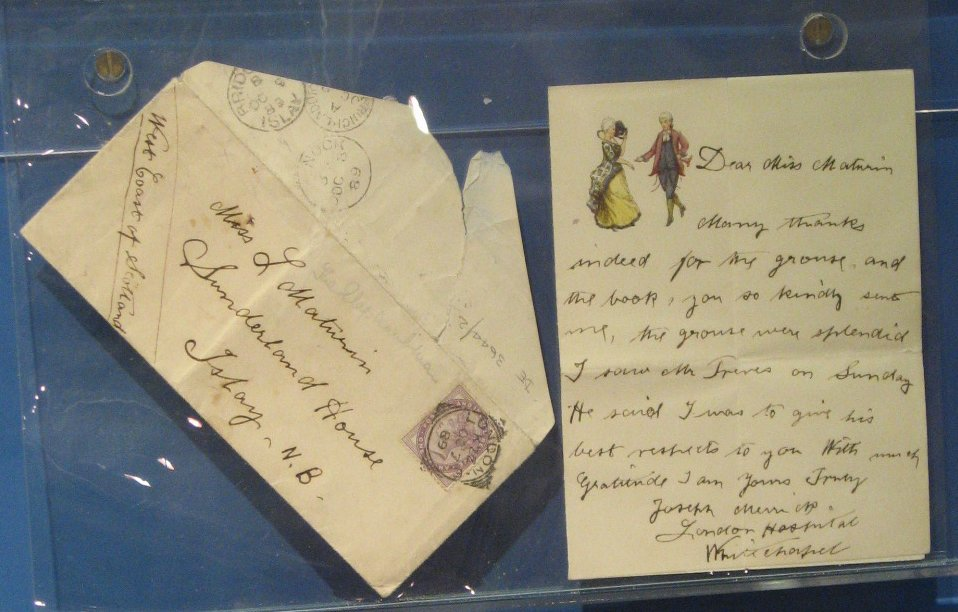 West Coast of Scotland
Miss L Maturin
Sunderland House
Islay. N.B.
LONDON.
ISLAY
Dear Miss Maturin
Many thanks
indeed for the grouse, and
the book, you so kindly sent
me, the grouse were splendid
I saw Mr Treves on Sunday
He said I was to give his
best respects to you With much
Gratitude I am Yours Truly
Joseph Merrick.
London Hospital
Whitechapel